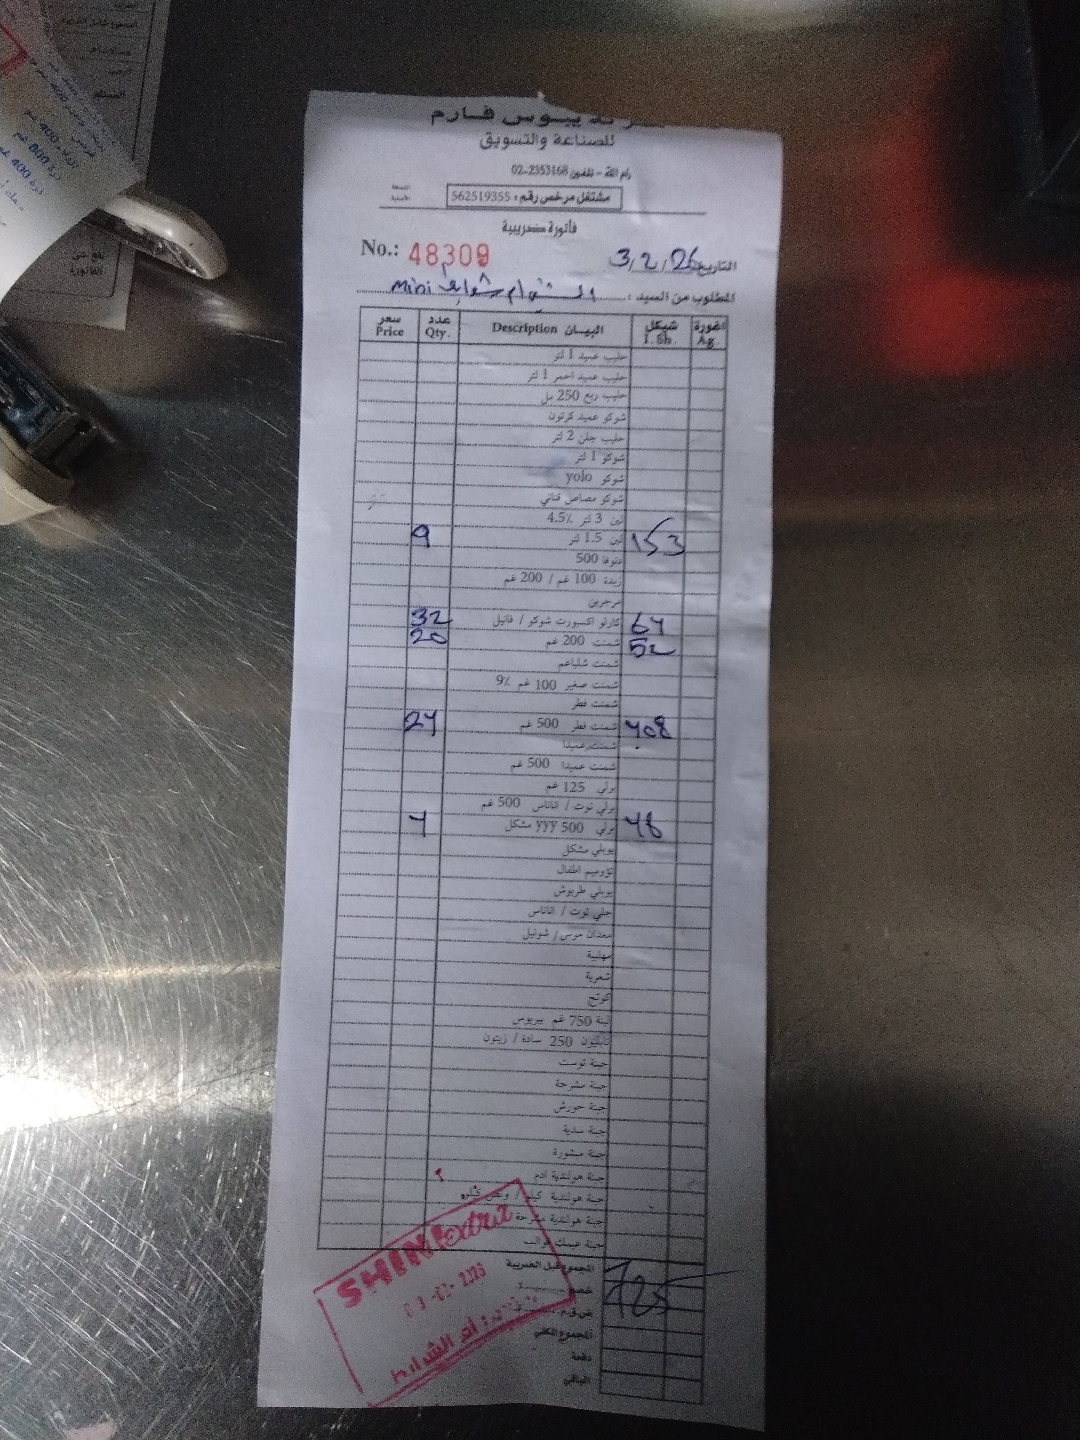 يبوس فارم
للصناعة والتسويق
رام الله - تلفون 2353168-02
مشتغل مرخص رقم: 562519355
النسخة الأصلية
فاتورة ضريبية
No.: 48309
التاريخ 3/2/26
المطلوب من السيد: Mini
سعر Price عدد Qty. البيــان Description شيكل I. Sh. اغورة Ag.
حليب عميد 1 لتر
حليب عميد احمر 1 لتر
حليب ربع 250 مل
شوكو عميد كرتون
حليب جلن 2 لتر
شوكو 1 لتر
شوكو yolo
شوكو مصاص قناني
لبن 3 لتر 4.5٪
9 لبن 1.5 لتر 153
دنوفا 500
زبدة 100 غم / 200 غم
مرجرين
32 كارلو اكسبورت شوكو / فانيل 64
20 شمنت 200 غم 52
شمنت شلباغم
شمنت صغير 100 غم 9٪
شمنت فطر
24 شمنت فطر 500 غم 408
شمنت عميدا
شمنت عميدا 500 غم
برلي 125 غم
برلي توت / اناناس 500 غم
4 برلي 500 yyy مشكل 48
يوبلي مشكل
اطفال
يوبلي طربوش
حلي توت / اناناس
معدان موس / شوتيل
مهلبية
شعرية
كوتج
لبنة 750 غم بيريوس
250 سادة / زيتون
جبنة توست
جبنة مشرحة
جبنة حورش
جبنة سادية
جبنة مبشورة
جبنة هولندية ادم
جبنة هولندية كيلو / ونص كيلو
جبنة هولندية مشرحة
جبنة عيمك
المجموع قبل الضريبة
725
المجموع الكلي
دفعة
الباقي
SHINI extra
03-02-2026